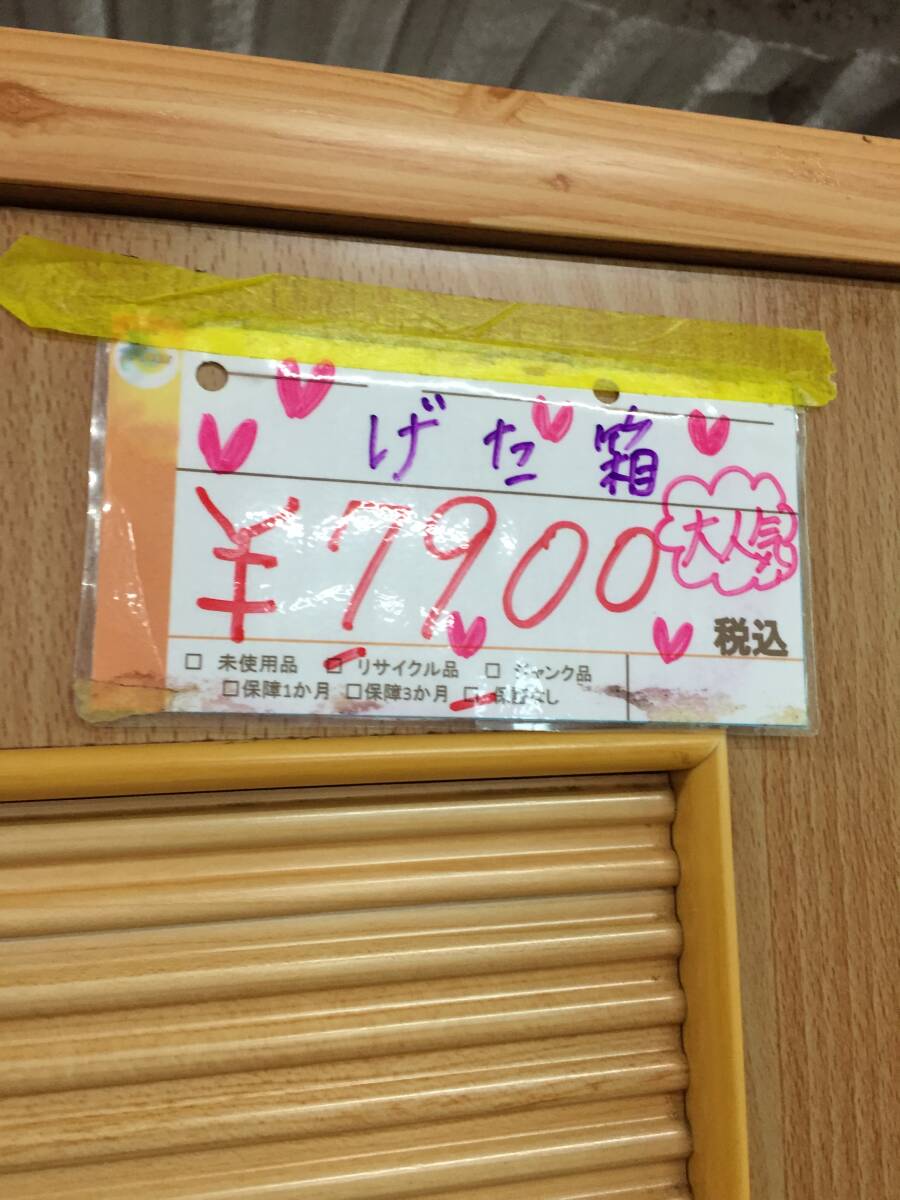 げた箱
¥7900
大人気
税込
□ 未使用品 □ リサイクル品 □ ジャンク品
□保障1か月 □保障3か月 □保証なし